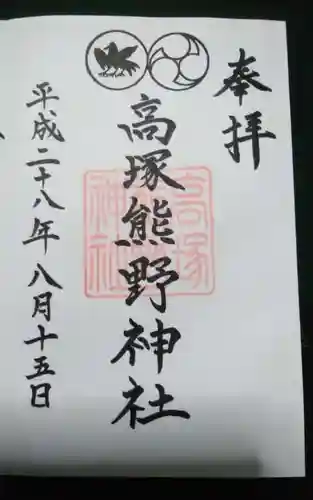 奉拝
高塚熊野神社
高塚
神社
平成二十八年八月十五日